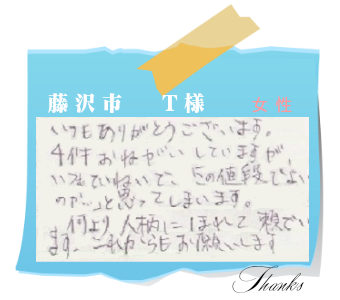 藤沢市 T様 女性
いつもありがとうございます。
4件おねがいしていますが、
いつもていねいで、この値段でよい
のか…と思ってしまいます。
何より人柄にほれて 想でい
ます。これからもお願いします
Thanks